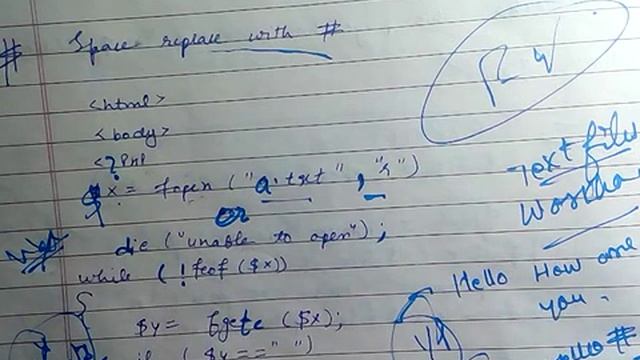 # Space replace with #
<html>
<body>
<?php
$x = fopen ("a.txt", "r")
or
die ("unable to open");
while (!feof($x))
$y = fgetc ($x);
if ($y == " ")
Text file
Hello How are
you.